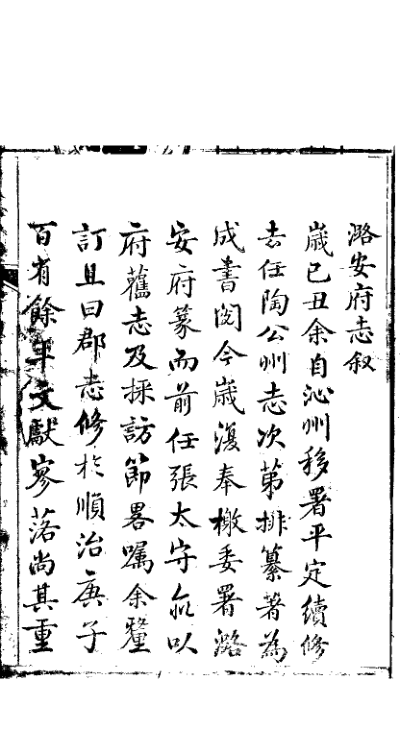 潞安府志叙
歲己丑余自沁州移署平定續修
去任陶公州志次第排纂著為
成書閱今歲復奉檄委署潞
安府篆而前任張太守亦以
府舊志及採訪節畧囑余釐
訂且曰郡志修於順治庚子
百有餘年文獻寥落尚其重